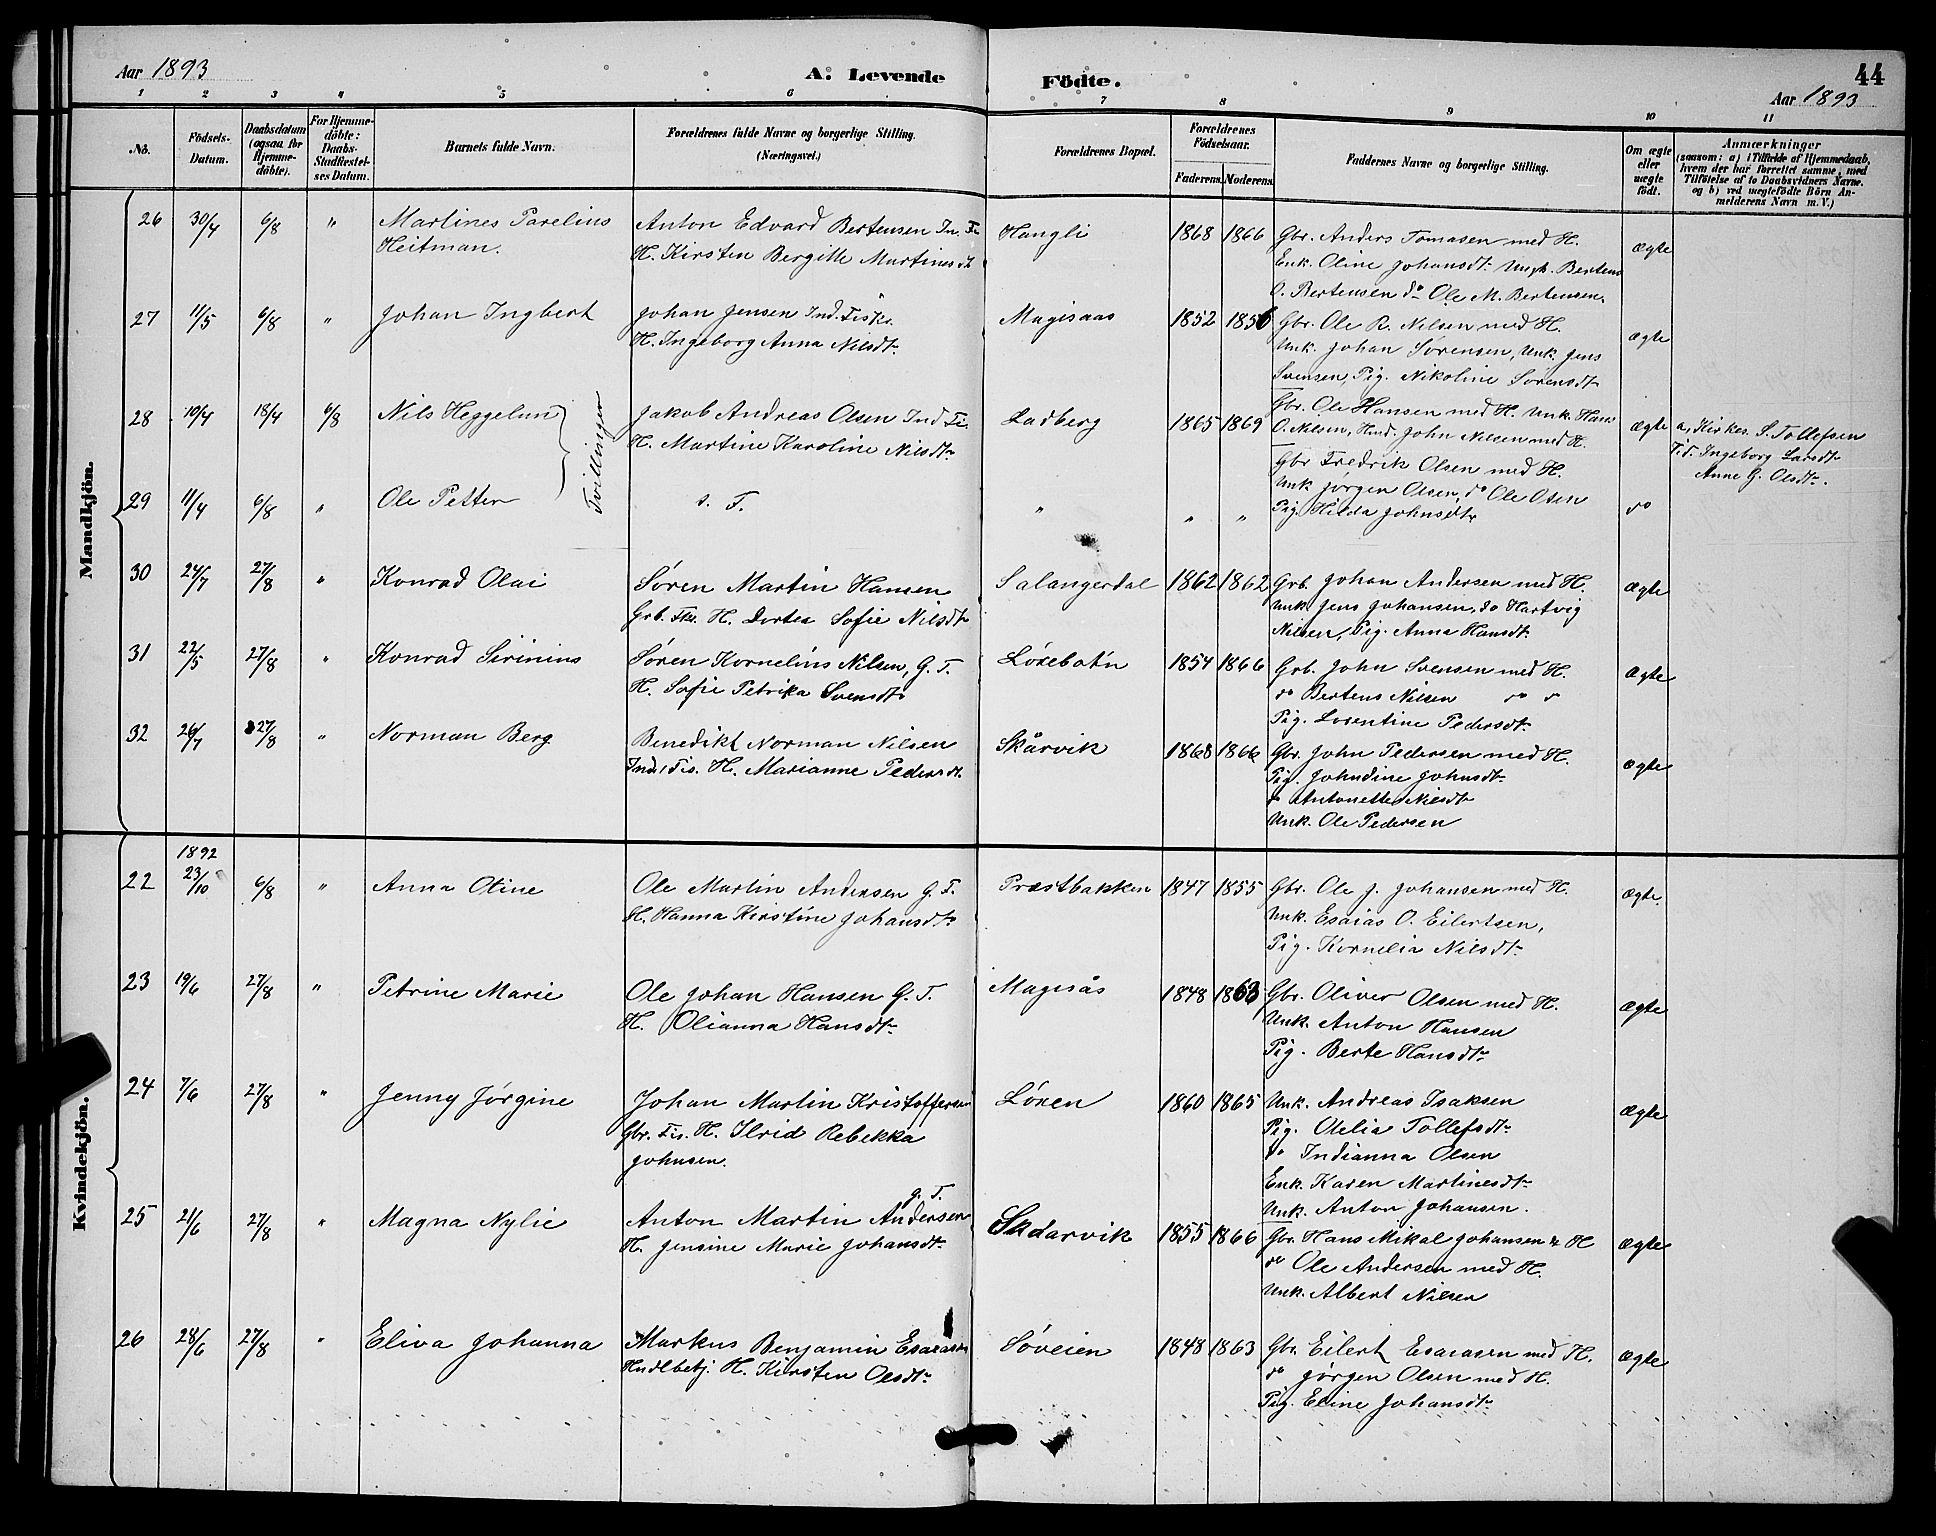 Aar 1893
A. Levende Födte.
44
Aar 1893
1 2 3 4 5 6 7 8 9 10 11
No.
Födsels-
Datum.
Daabsdatum
(ogsaa for
Hjemme-
döbte).
For Hjemme-
döbte:
Daabs-
Stadfæstel-
ses Datum.
Barnets fulde Navn.
Forældrenes fulde Navne og borgerlige Stilling.
(Næringsvei.)
Forældrenes Bopæl.
Forældrenes
Födselsaar.
Faderens. Moderens.
Faddernes Navne og borgerlige Stilling.
Om ægte
eller
uægte
födt.
Anmærkninger
(saasom: a) i Tilfælde af Hjemmedaab,
hvem der har forrettet samme, med
Tilföielse af to Daabsvidners Navne,
og b) ved uegtefödte Börn An-
melderens Navn m. V.)
Mandkjön.
26 30/4 6/8 " Martines Parelius
Heitman.
Anton Edvard Bertensen In. Fi
H. Kirsten Bergitte Martinesdt
Hangli 1868 1866
Gbr. Anders Tomasen med H.
Enk. Oline Johansdt. Ungk. Bertens
O. Bertensen do Ole M. Bertensen.
ægte
27 11/5 6/8 " Johan Ingbert
Johan Jensen Ind. Fisk.
H. Ingeborg Anna Nilsdt.
Magisaas 1852 1856
Gbr. Ole R. Nilsen med H.
Unk. Johan Sørensen, Unk. Jens
Svensen, Pig. Nikoline Sørensdt
ægte
28 10/4 18/4 6/8 Nils Heggelun
Tvillinger
Jakob Andreas Olsen Ind Fi.
H. Martine Karoline Nilsdt.
Ladberg 1865 1869
Gbr. Ole Hansen med H. Unk. Hans
O. Nilsen, Hmd. John Nilsen med H.
ægte
a, Kirkes. S. Tollefsen
F.d. Ingeborg Larsdt
Anne G. Olsdt.
29 11/4 6/8 " Ole Petter
s. F.
" " "
Gbr Fredrik Olsen med H.
Unk Jørgen Olsen, do Ole Olsen
Pig. Hilda Johnsdt
do
30 24/7 27/8 " Konrad Olai
Søren Martin Hansen
Grb. Fis. H. Dortea Sofie Nilsdt
Salangerdal 1862 1862
Grb. Johan Andersen med H.
Unk. Jens Johansen, do Hartvig
Nilsen, Pig. Anna Hansdt.
ægte
31 22/5 27/8 " Konrad Sirinius
Søren Kornelius Nilsen, G. F.
H. Sofie Petrika Svensdt.
Løsebotn 1854 1866
Grb. John Svensen med H.
do Bertens Nilsen do do
Pig. Lorentine Pedersdt.
ægte
32 26/7 27/8 " Norman Berg
Benedikt Norman Nilsen
Inds, Fis. H. Marianne Pedersdt.
Skårvik 1868 1866
Gbr. John Pedersen med H.
Pig. Johndine Johnsdt.
do Antonette Nilsdt
Unk. Ole Pedersen
ægte
Kvindekjön.
1892
22 23/10 6/8 " Anna Otine
Ole Martin Andersen G. F.
H. Hanna Kirstine Johansdt
Præstbakken 1847 1855
Gbr. Ole J. Johansen med H.
Unk. Esaias O. Eilertsen,
Pig. Kornelia Nilsdt.
ægte.
23 19/6 27/8 " Petrine Marie
Ole Johan Hansen G. F.
H. Olianna Hansdt.
Magisås 1848 1863
Gbr. Oliver Olsen med H.
Unk. Anton Hansen
Pig. Berte Hansdt.
ægte
24 7/6 27/8 " Jenny Jørgine
Johan Martin Kristoffersen
Gbr. Fis. H. Ilrid Rebekka
Johnsen.
Løsen 1860 1865
Unk. Andreas Isaksen
Pig. Otelia Tollefsdt.
do Indianna Olsen
Enk. Karen Martinesdt.
Unk. Anton Johansen.
ægte
25 21/6 27/8 " Magna Nylie
G. F.
Anton Martin Andersen
H. Jensine Marie Johansdt.
Skdarvik 1855 1866
Gbr. Hans Mikal Johansen m H
do Ole Andersen med H.
Unk. Albert Nilsen
ægte
26 28/6 27/8 " Eliva Johanna
Markus Benjamin Esaiasen
Hndlbetj. H. Kirsten Olsdt.
Søveien 1848 1863
Gbr. Eilert Esaiasen med H.
do Jørgen Olsen med H.
Pig. Eline Johansdt.
ægte